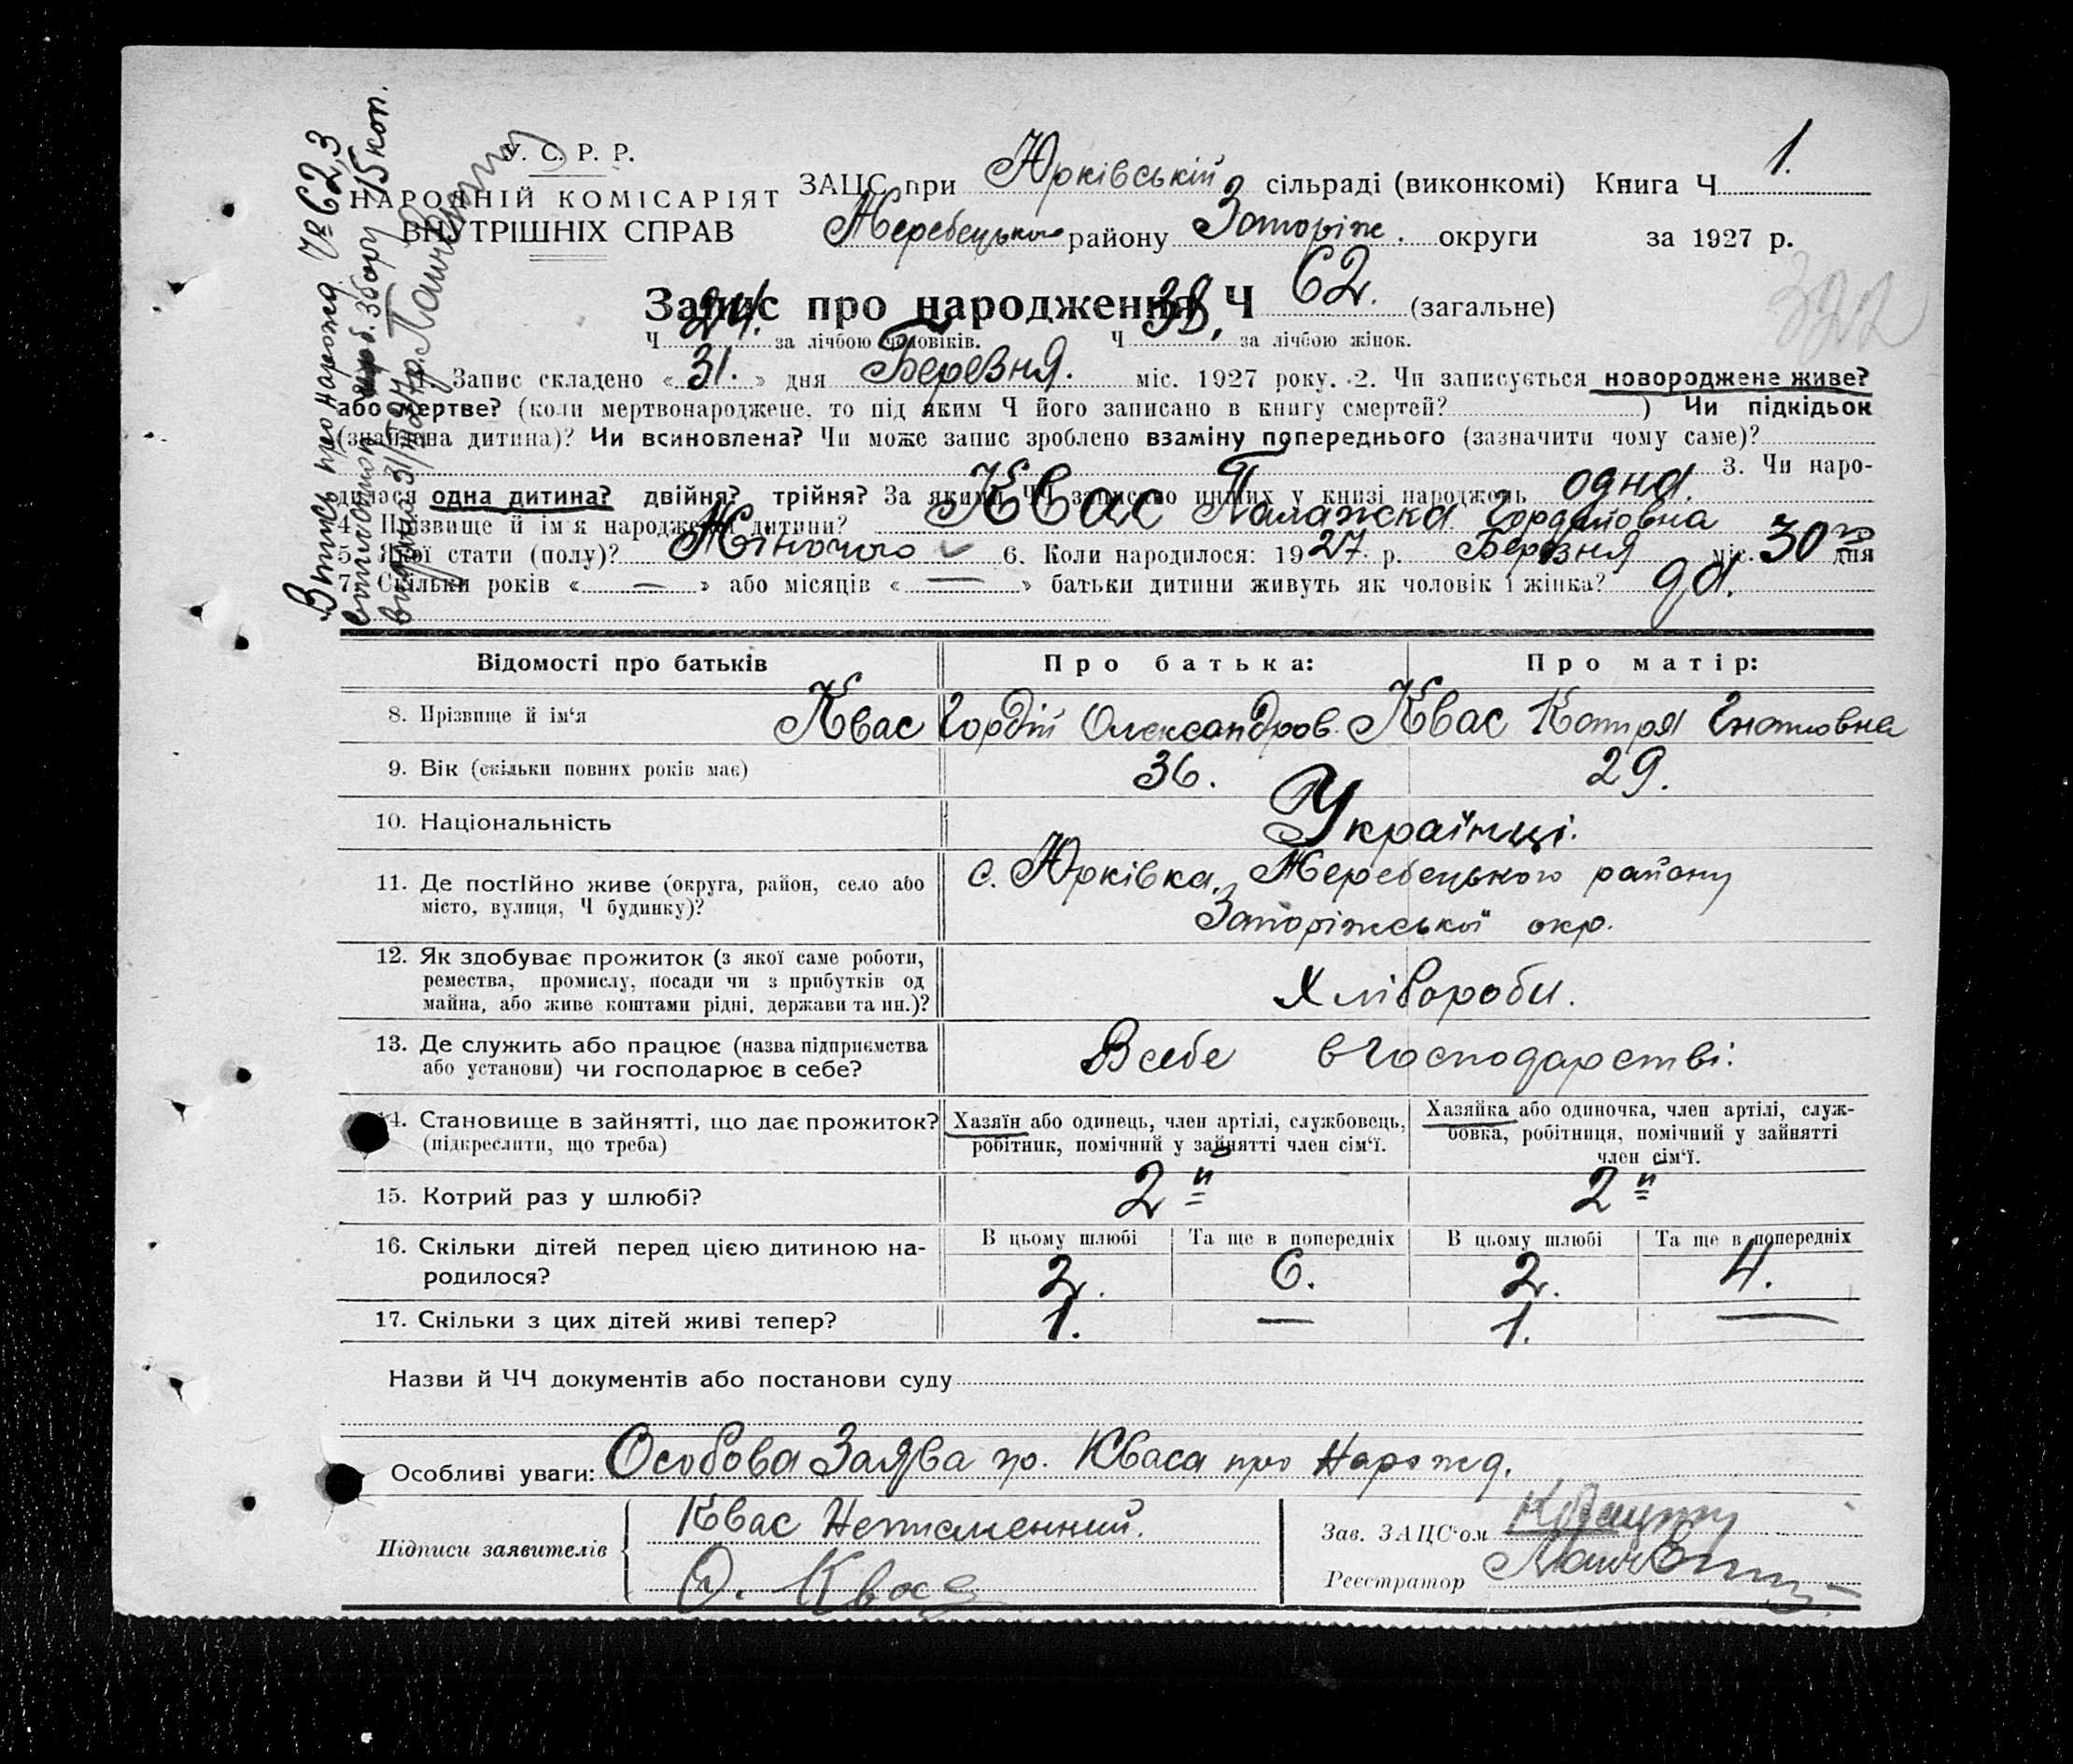 У. С. Р. Р.
НАРОДНІЙ КОМІСАРІЯТ
ВНУТРІШНІХ СПРАВ
ЗАЦС при Юрківській сільраді (виконкомі) Книга Ч 1.
Жеребецького району Запоріж. округи за 1927 р.
322
Запис про народження Ч 62. (загальне)
Ч 24. за лічбою чоловіків. Ч 38. за лічбою жінок.
1. Запис складено « 31. » дня Березня. міс. 1927 року. 2. Чи записується новороджене живе?
або мертве? (коли мертвонароджене, то під яким Ч його записано в книгу смертей? ) Чи підкідьок
(знайдена дитина)? Чи всиновлена? Чи може запис зроблено взаміну попереднього (зазначити чому саме)?
3. Чи наро-
дилася одна дитина? двійня? трійня? За якими ЧЧ записано инших у книзі народжень одна.
4. Прізвище й ім'я народженої дитини? Квас Палажка Гордіївна
5. Якої стати (полу)? Жіночого 6. Коли народилося: 1927 р. Березня міс. 30го дня
7. Скільки років « — » або місяців « — » батьки дитини живуть як чоловік і жінка? да.
Впись про нарожд. № 62,3
збору 15 коп.
Відомості про батьків Про батька: Про матір:
8. Прізвище й ім'я Квас Гордій Олександров. Квас Катря Гнатовна
9. Вік (скільки повних років має) 36. 29.
10. Національність Українці.
11. Де постійно живе (округа, район, село або
місто, вулиця, Ч будинку)?
с. Юрківка, Жеребецького району
Запоріжської окр.
12. Як здобуває прожиток (з якої саме роботи,
ремества, промислу, посади чи з прибутків од
майна, або живе коштами рідні, держави та ин.)?
Хлібороби.
13. Де служить або працює (назва підприємства
або установи) чи господарює в себе?
В себе в господарстві.
14. Становище в зайнятті, що дає прожиток?
(підкреслити, що треба)
Хазяїн або одинець, член артілі, службовець,
робітник, помічний у зайнятті член сім'ї.
Хазяйка або одиночка, член артілі, служ-
бовка, робітниця, помічний у зайнятті
член сім'ї.
15. Котрий раз у шлюбі? 2й 2й
16. Скільки дітей перед цією дитиною на-
родилося?
В цьому шлюбі Та ще в попередніх В цьому шлюбі Та ще в попередніх
2. 6. 2. 4.
17. Скільки з цих дітей живі тепер? 1. — 1. —
Назви й ЧЧ документів або постанови суду
Особливі уваги: Особова Заява гр. Кваса про Нарожд.
Підписи заявителів Квас Неписменний.
О. Квас
Зав. ЗАЦС'ом
Реєстратор